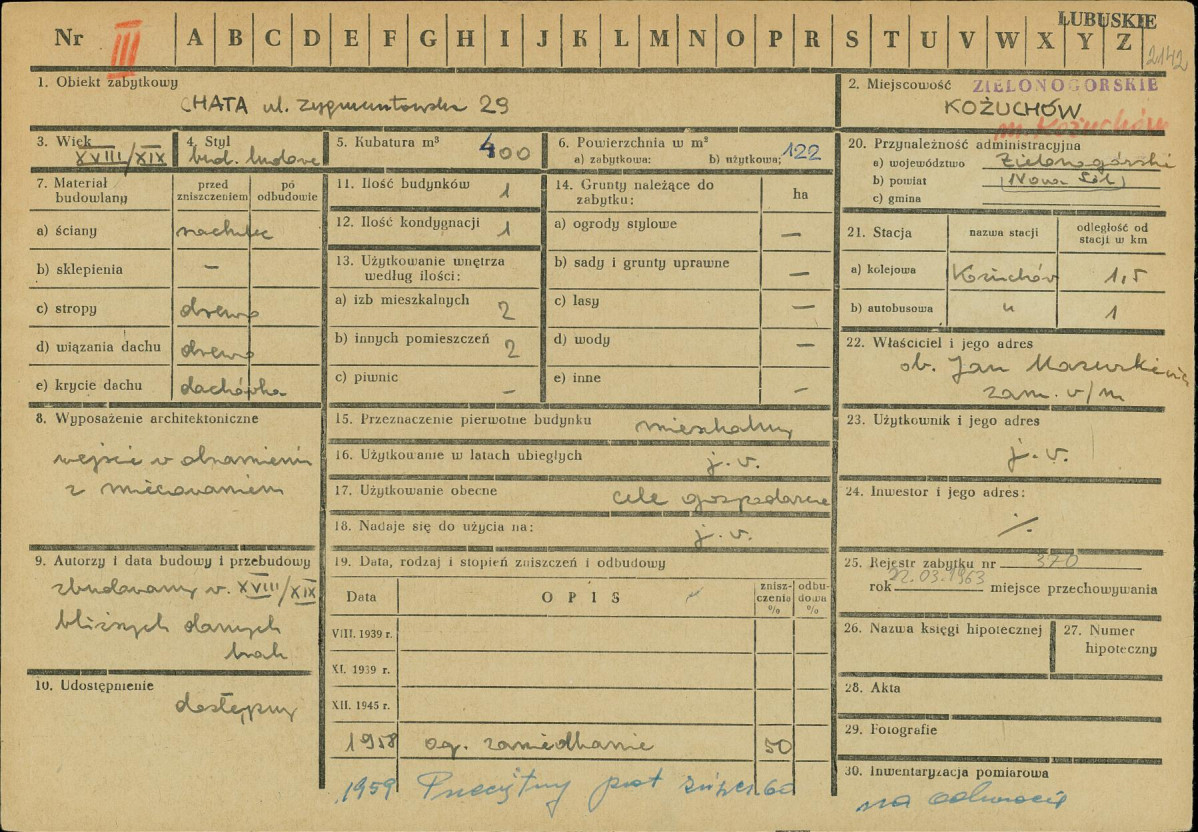 LUBUSKIE
Nr III A B C D E F G H I J K L M N O P R S T U V W X Y Z
2142
1. Obiekt zabytkowy
CHATA ul. Zygmuntowska 29
2. Miejscowość ZIELONOGÓRSKIE
KOŻUCHÓW
m. Kożuchów
3. Wiek
XVIII/XIX
4. Styl
bud. ludowe
5. Kubatura m³ 400
6. Powierzchnia w m²
a) zabytkowa: b) użytkowa: 122
20. Przynależność administracyjna
a) województwo Zielonogórski
b) powiat (Nowa Sól)
c) gmina
7. Materiał budowlany
przed zniszczeniem
po odbudowie
a) ściany
b) sklepienia —
c) stropy drewno
d) wiązania dachu drewno
e) krycie dachu dachówka
11. Ilość budynków 1
12. Ilość kondygnacji 1
13. Użytkowanie wnętrza
według ilości:
a) izb mieszkalnych 2
b) innych pomieszczeń 2
c) piwnic —
14. Grunty należące do
zabytku: ha
a) ogrody stylowe —
b) sady i grunty uprawne —
c) lasy —
d) wody —
e) inne —
21. Stacja nazwa stacji odległość od
stacji w km
a) kolejowa Kożuchów 1,5
b) autobusowa " 1
22. Właściciel i jego adres
ob. Jan Mazurkiewicz
zam. w/m
8. Wyposażenie architektoniczne
wejście w obramieniu
z
15. Przeznaczenie pierwotne budynku mieszkalny
16. Użytkowanie w latach ubiegłych j. w.
17. Użytkowanie obecne cele gospodarcze
18. Nadaje się do użycia na: j. w.
23. Użytkownik i jego adres
j. w.
24. Inwestor i jego adres:
·/.
9. Autorzy i data budowy i przebudowy
zbudowany w. XVIII/XIX
bliższych danych
brak
10. Udostępnienie
dostępny
19. Data, rodzaj i stopień zniszczeń i odbudowy
Data OPIS znisz-
czenia
% odbu-
dowa
%
VIII. 1939 r.
XI. 1939 r.
XII. 1945 r.
1958 og. zaniedbanie 50
1959 Przeciętny
25. Rejestr zabytku nr 370
rok 22.03.1963 miejsce przechowywania
26. Nazwa księgi hipotecznej
27. Numer
hipoteczny
28. Akta
29. Fotografie
30. Inwentaryzacja pomiarowa
na odwrocie